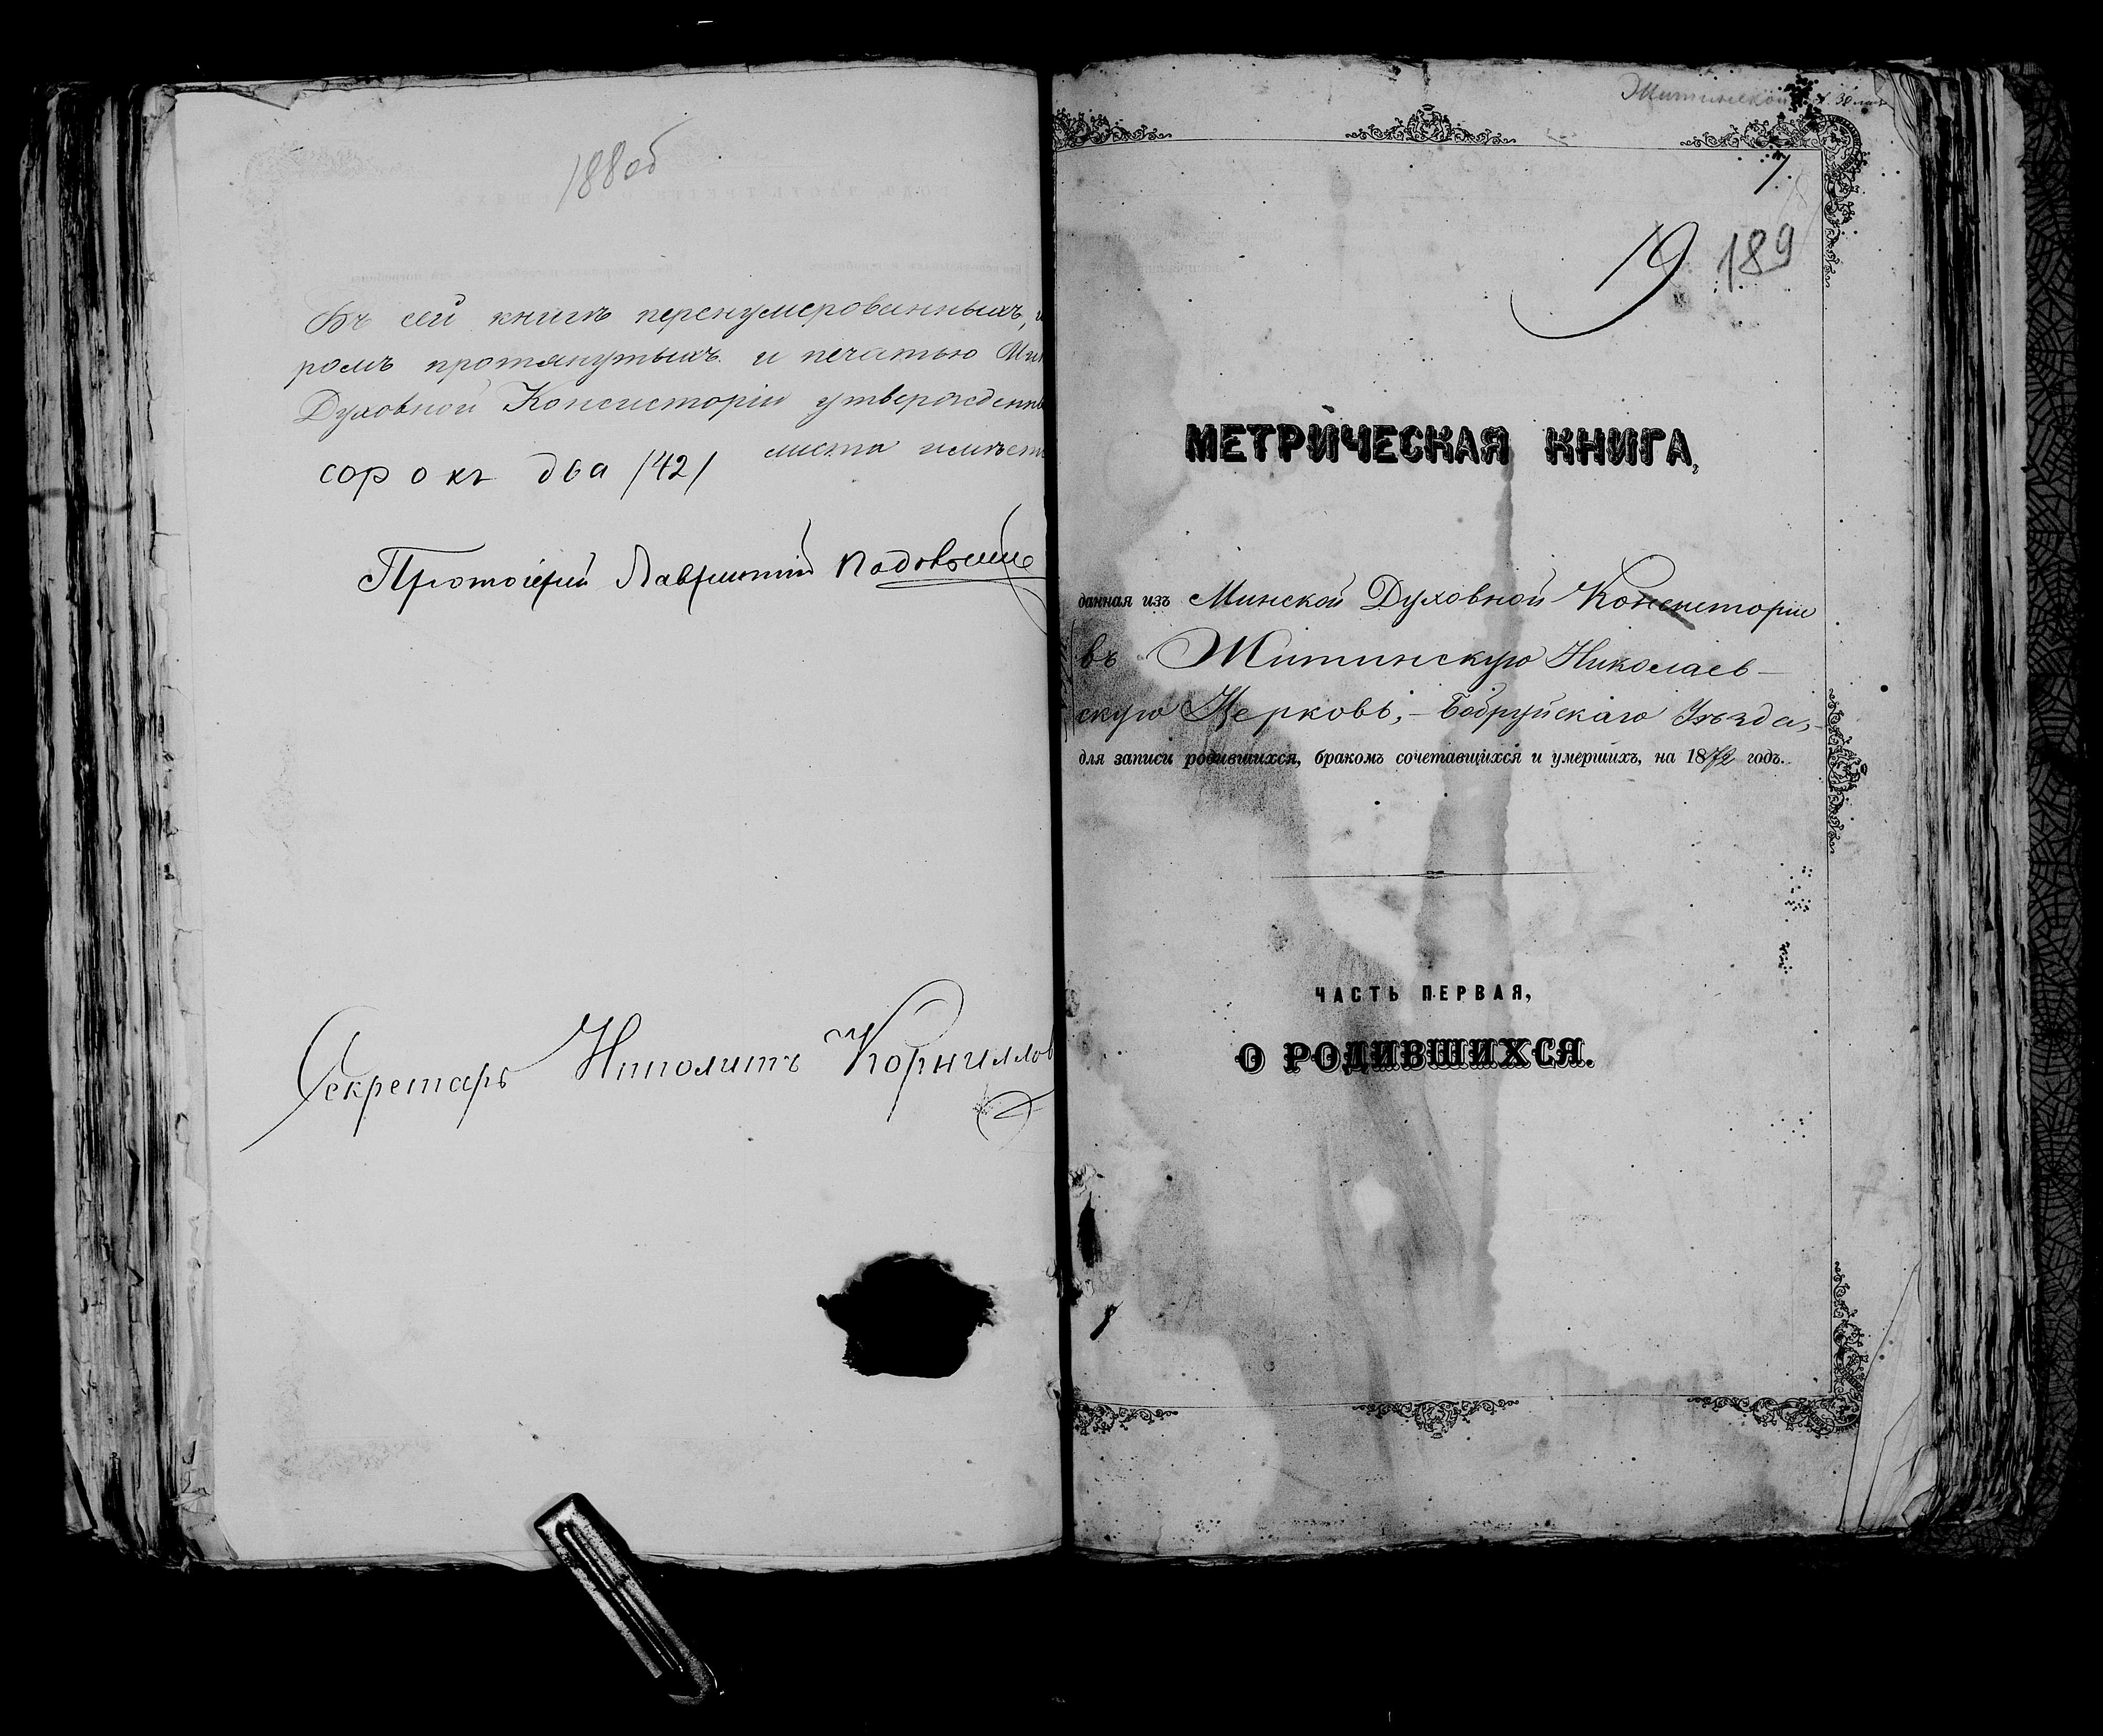 188об
Въ сей книгѣ перенумерованныхъ,
ромъ протянутыхъ и печатью
Духовной Консисторіи утвержденны
листа имѣет
сорокъ два /42/
Протоіерей Лаврентій
Секретарь Иполитъ Корниллов
Житинской
19 189
МЕТРИЧЕСКАЯ КНИГА,
данная изъ Минской Духовной Консисторіи
въ Житинскую Николаев-
скую Церковь,- Бобруйскаго Уѣзда,
для записи родившихся, бракомъ сочетавшихся и умершихъ, на 1872 годъ.
ЧАСТЬ ПЕРВАЯ,
О РОДИВШИХСЯ.